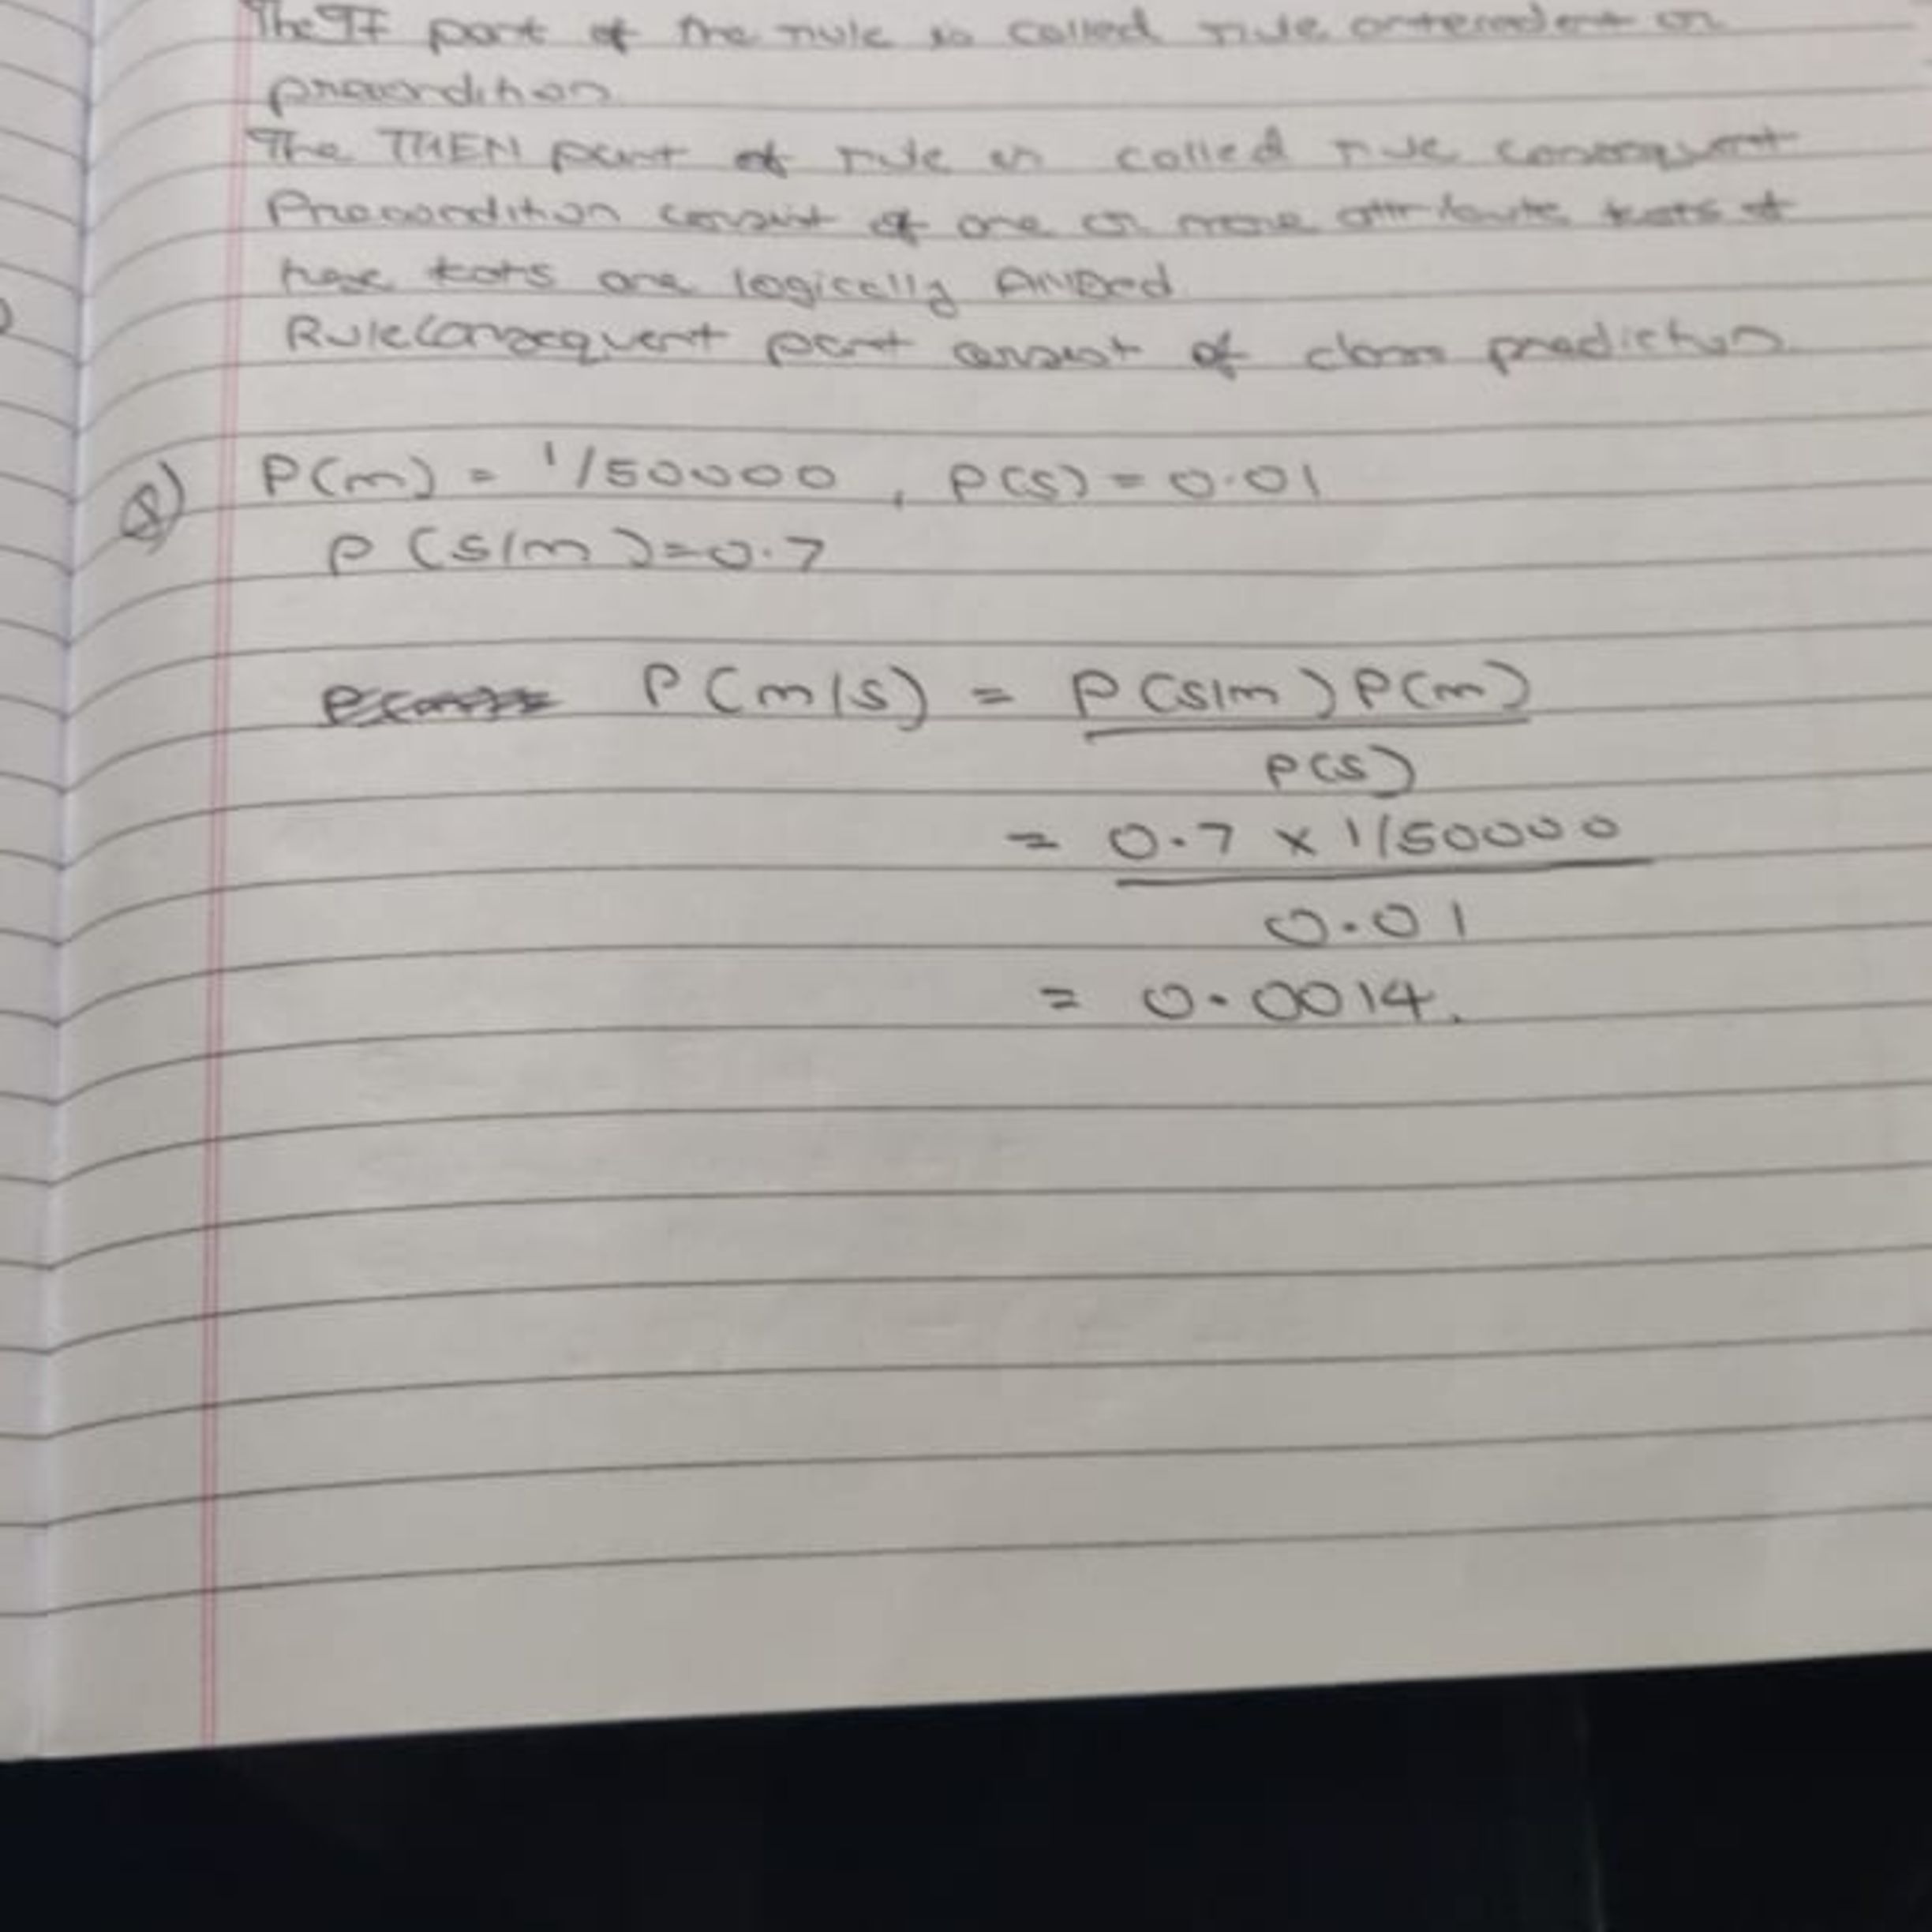 The IF part of the rule is called rule antecedent or
precondition
The THEN part of rule is called rule consequent
Precondition consist of one or more attribute tests &
these tests are logically ANDed
Rule Consequent part consist of class prediction
8) P(m) = 1/50000 , P(s) = 0.01
P(s|m) = 0.7
P(m|s) = P(s|m) P(m)
P(s)
= 0.7 x 1/50000
0.01
= 0.0014.